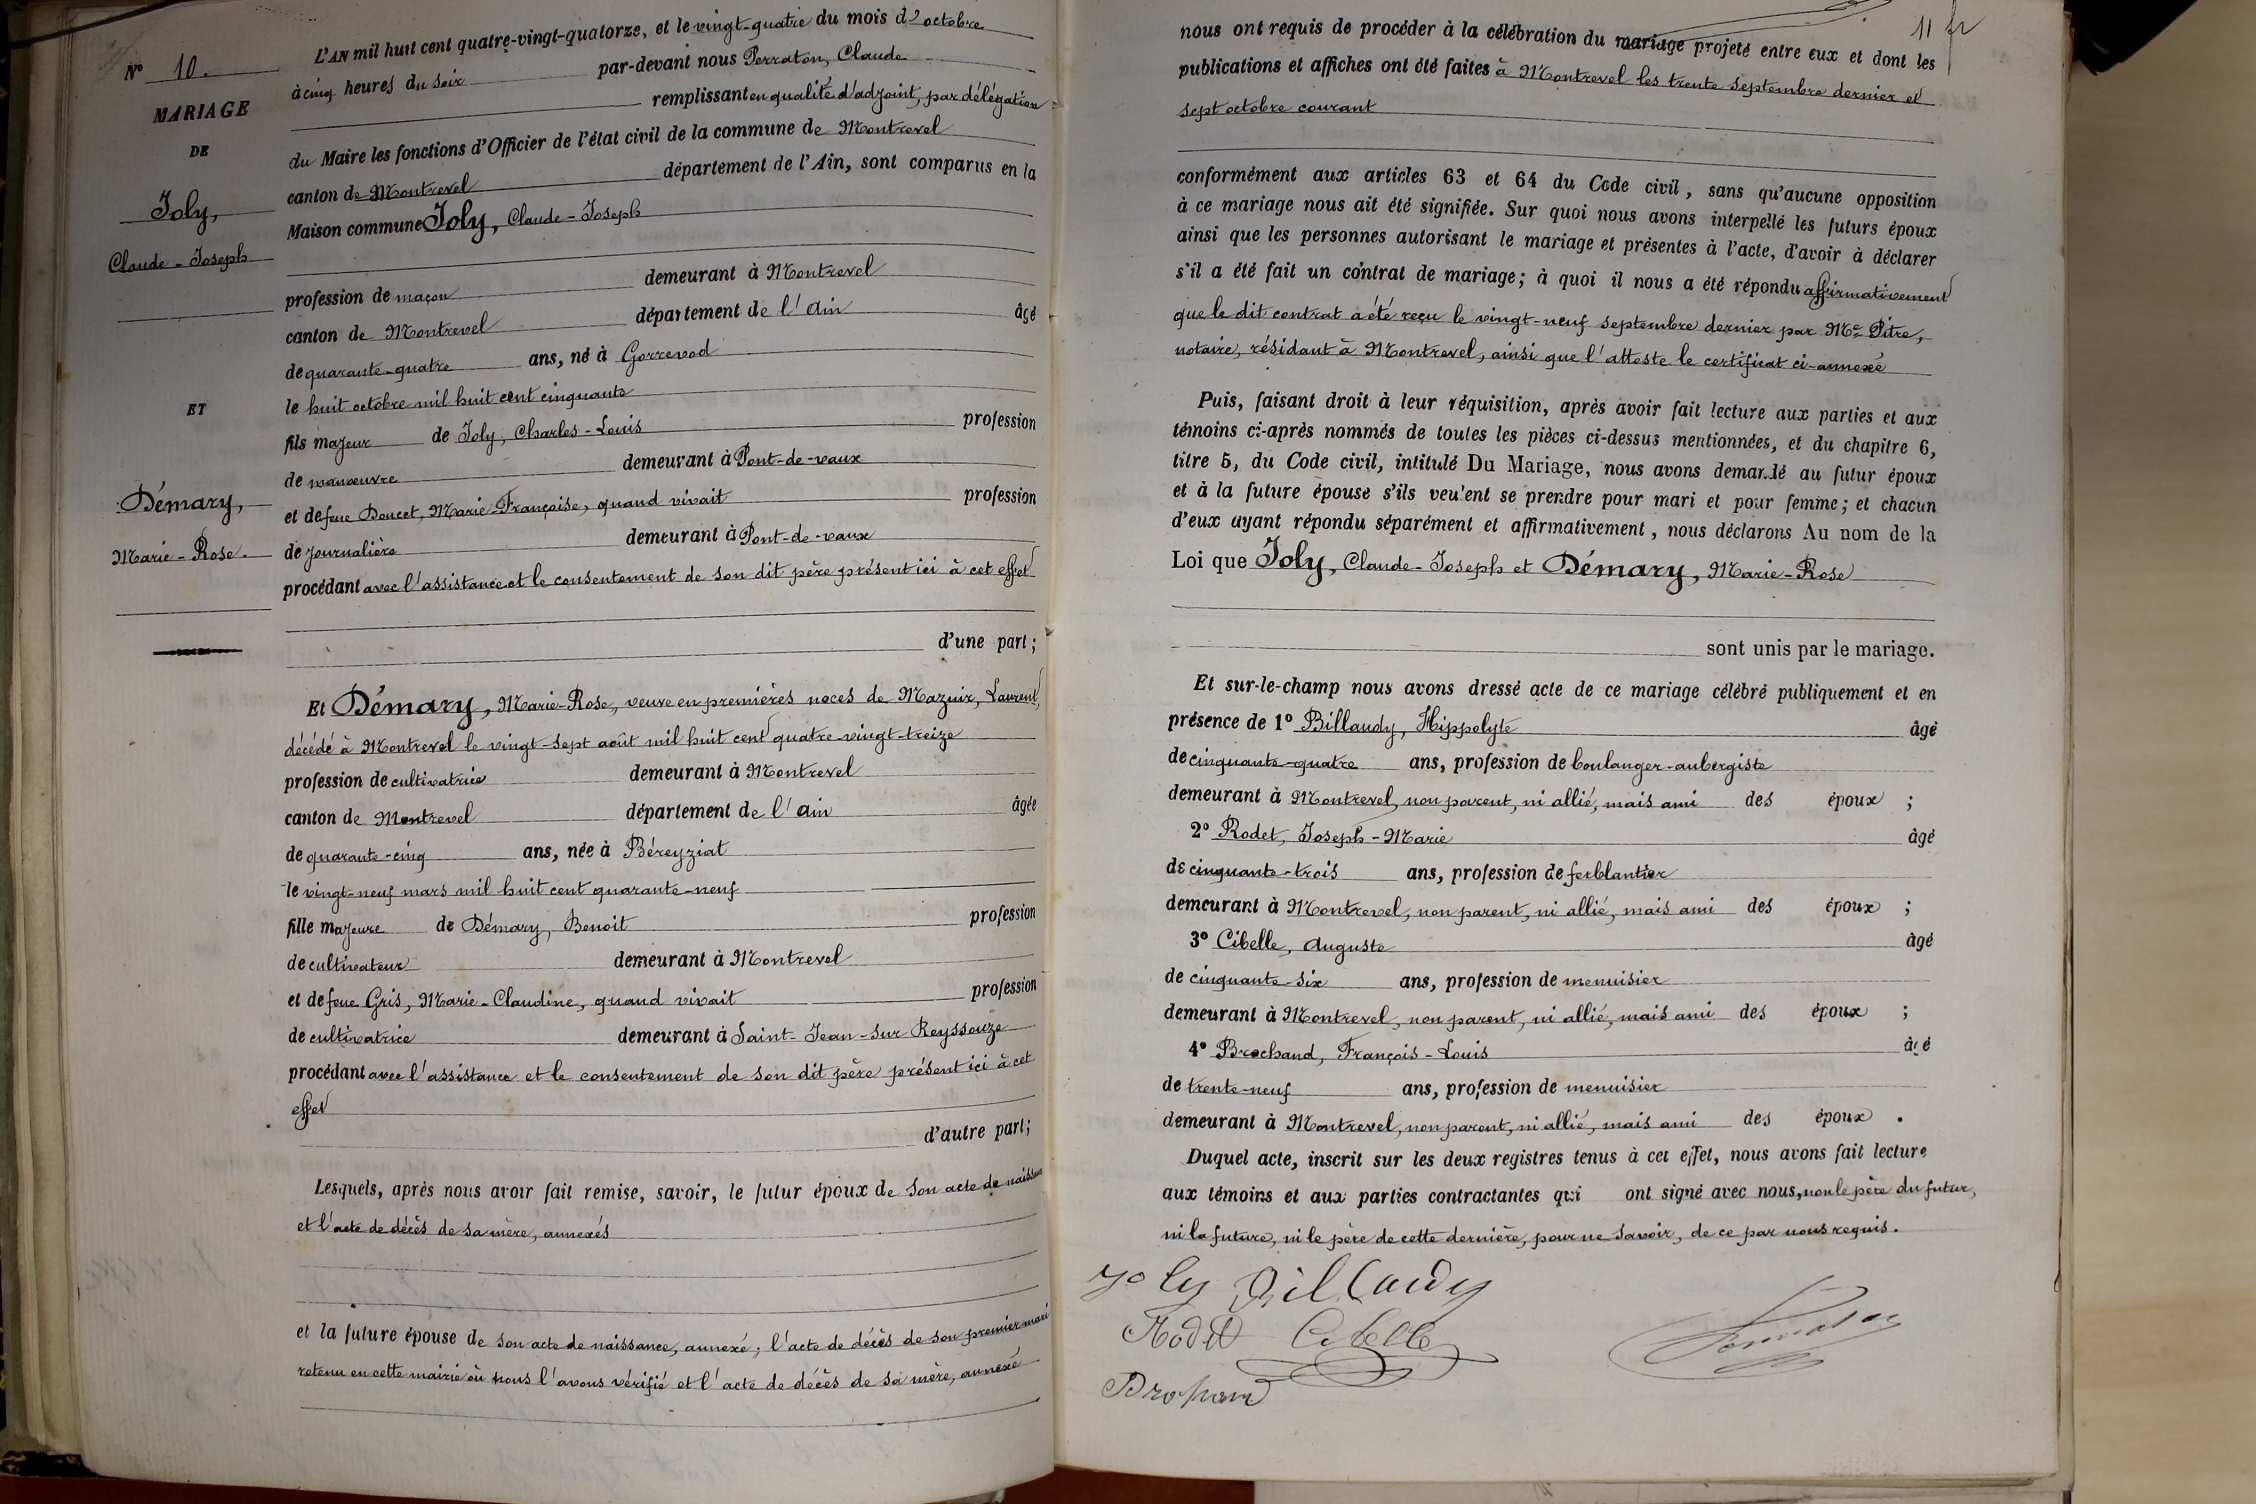 N° 10.
MARIAGE
DE
Joly,
Claude - Joseph
ET
Démary,
Marie - Rose.
L'AN mil huit cent quatre-vingt-quatorze, et le vingt-quatre du mois d'octobre
à cinq heures du soir par-devant nous Perraton, Claude
remplissant en qualité d'adjoint, par délégation
du Maire les fonctions d'Officier de l'état civil de la commune de Montrevel
canton de Montrevel département de l'Ain, sont comparus en la
Maison commune Joly, Claude - Joseph
profession de maçon demeurant à Montrevel
canton de Montrevel département de l'Ain âgé
de quarante-quatre ans, né à Gorrevod
le huit octobre mil huit cent cinquante
fils majeur de Joly, Charles - Louis profession
de manœuvre demeurant à Pont-de-vaux
et de feue Doucet, Marie-Françoise, quand vivait profession
de journalière demeurant à Pont-de-vaux
procédant avec l'assistance et le consentement de son dit père présent ici à cet effet
d'une part;
Et Démary, Marie-Rose, veuve en premières noces de Mazuir, Laurent,
décédé à Montrevel le vingt-sept août mil huit cent quatre-vingt-treize
profession de cultivatrice demeurant à Montrevel
canton de Montrevel département de l'Ain âgée
de quarante-cinq ans, née à Béreyziat
le vingt-neuf mars mil huit cent quarante-neuf
fille majeure de Démary, Benoit profession
de cultivateur demeurant à Montrevel
et de feue Gris, Marie-Claudine, quand vivait profession
de cultivatrice demeurant à Saint-Jean-sur Reyssouze
procédant avec l'assistance et le consentement de son dit père présent ici à cet
effet
d'autre part;
Lesquels, après nous avoir fait remise, savoir, le futur époux de son acte de naissance
et l'acte de décès de sa mère, annexés
et la future épouse de son acte de naissance, annexé; l'acte de décès de son premier mari
retenu en cette mairie où nous l'avons vérifié et l'acte de décès de sa mère, annexé
11 fr
nous ont requis de procéder à la célébration du mariage projeté entre eux et dont les
publications et affiches ont été faites à Montrevel les trente septembre dernier et
sept octobre courant
conformément aux articles 63 et 64 du Code civil, sans qu'aucune opposition
à ce mariage nous ait été signifiée. Sur quoi nous avons interpellé les futurs époux
ainsi que les personnes autorisant le mariage et présentes à l'acte, d'avoir à déclarer
s'il a été fait un contrat de mariage; à quoi il nous a été répondu affirmativement
que le dit contrat a été reçu le vingt-neuf septembre dernier par Me Pitre,
notaire, résidant à Montrevel, ainsi que l'atteste le certificat ci-annexé
Puis, faisant droit à leur réquisition, après avoir fait lecture aux parties et aux
témoins ci-après nommés de toutes les pièces ci-dessus mentionnées, et du chapitre 6,
titre 5, du Code civil, intitulé Du Mariage, nous avons demandé au futur époux
et à la future épouse s'ils veulent se prendre pour mari et pour femme; et chacun
d'eux ayant répondu séparément et affirmativement, nous déclarons Au nom de la
Loi que Joly, Claude-Joseph et Démary, Marie-Rose
sont unis par le mariage.
Et sur-le-champ nous avons dressé acte de ce mariage célébré publiquement et en
présence de 1° Billaudy, Hippolyte âgé
de cinquante-quatre ans, profession de boulanger-aubergiste
demeurant à Montrevel, non parent, ni allié, mais ami des époux ;
2° Rodet, Joseph-Marie âgé
de cinquante-trois ans, profession de ferblantier
demeurant à Montrevel, non parent, ni allié, mais ami des époux ;
3° Cibelle, Auguste âgé
de cinquante-six ans, profession de menuisier
demeurant à Montrevel, non parent, ni allié, mais ami des époux ;
4° Brochand, François-Louis âgé
de trente-neuf ans, profession de menuisier
demeurant à Montrevel, non parent, ni allié, mais ami des époux .
Duquel acte, inscrit sur les deux registres tenus à cet effet, nous avons fait lecture
aux témoins et aux parties contractantes qui ont signé avec nous, non le père du futur,
ni la future, ni le père de cette dernière, pour ne savoir, de ce par nous requis.
Joly Billaudy
Rodet Cibelle
Perraton
Brochand